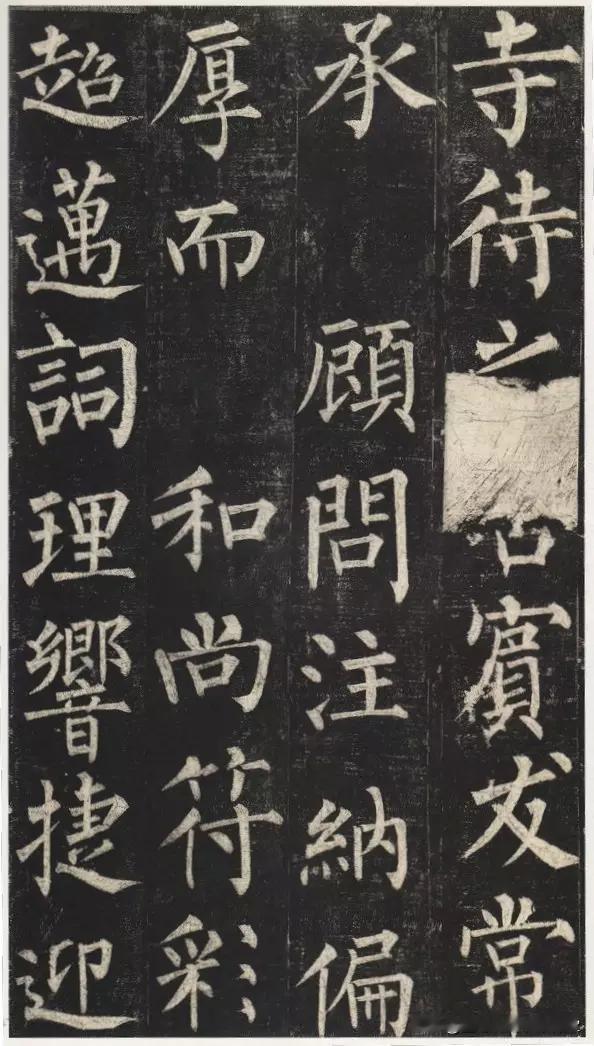 寺待賓友常
承顧問注納偏
厚而和尚符彩
超邁詞理響捷迎